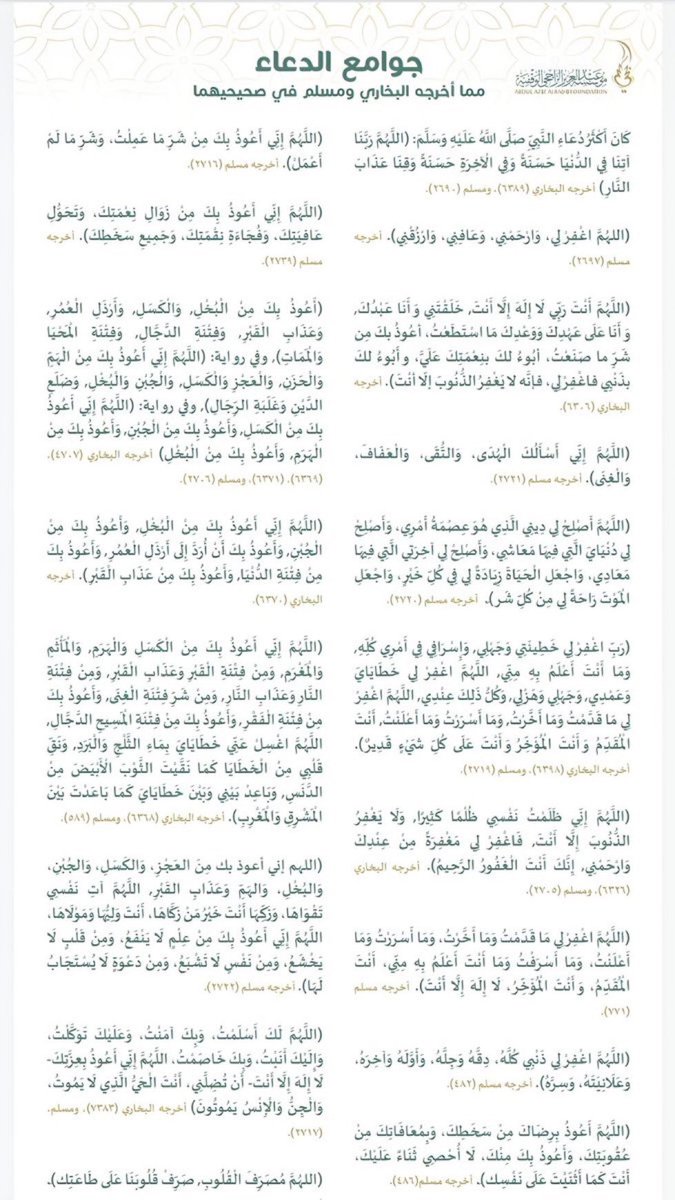 جوامع الدعاء
مما أخرجه البخاري ومسلم في صحيحيهما
مؤسسة عبدالعزيز الراجحي الوقفية
ABDUL AZIZ ALRAJHI FOUNDATION
كَانَ أَكْثَرُ دُعَاءِ النَّبِيِّ صَلَّى اللَّهُ عَلَيْهِ وَسَلَّمَ: (اللَّهُمَّ رَبَّنَا
آتِنَا فِي الدُّنْيَا حَسَنَةً وَفِي الْآخِرَةِ حَسَنَةً وَقِنَا عَذَابَ
النَّارِ) أخرجه البخاري (٦٣٨٩)، ومسلم (٢٦٩٠).
(اللهُمَّ اغْفِرْ لِي، وَارْحَمْنِي، وَعَافِنِي، وَارْزُقْنِي). أخرجه
مسلم (٢٦٩٧).
(اللَّهُمَّ أَنْتَ رَبِّي لَا إِلَهَ إِلَّا أَنْتَ, خَلَقْتَنِي وَ أَنَا عَبْدُكَ,
وَ أَنَا عَلَى عَهْدِكَ وَوَعْدِكَ مَا اسْتَطَعْتُ، أَعُوذُ بِكَ مِن
شَرِّ ما صَنَعْتُ، أبُوءُ لكَ بنِعْمَتِكَ عَلَيَّ، و أَبُوءُ لكَ
بذَنْبِي فاغْفِرْلِي، فإنَّه لا يَغْفِرُ الذُّنُوبَ إلَّا أنْتَ). أخرجه
البخاري (٦٣٠٦).
(اللَّهُمَّ إِنِّي أَسْأَلُكَ الْهُدَى، وَالتُّقَى، وَالْعَفَافَ،
وَالْغِنَى). أخرجه مسلم (٢٧٢١).
(اللَّهُمَّ أَصْلِحْ لِي دِينِي الَّذِي هُوَ عِصْمَةُ أَمْرِي، وَأَصْلِحْ
لِي دُنْيَايَ الَّتِي فِيهَا مَعَاشِي، وَأَصْلِحْ لِي آخِرَتِي الَّتِي فِيهَا
مَعَادِي، وَاجْعَلِ الْحَيَاةَ زِيَادَةً لِي فِي كُلِّ خَيْرٍ، وَاجْعَلِ
الْمَوْتَ رَاحَةً لِي مِنْ كُلِّ شَر). أخرجه مسلم (٢٧٢٠).
(رَبِّ اغْفِرْ لِي خَطِيئَتِي وَجَهْلِي, وَإِسْرَافِي فِي أَمْرِي كُلِّهِ,
وَمَا أَنْتَ أَعْلَمُ بِهِ مِنِّي, اللَّهُمَّ اغْفِرْ لِي خَطَايَايَ
وَعَمْدِي, وَجَهْلِي وَهَزْلِي, وَكُلُّ ذَلِكَ عِنْدِي, اللَّهُمَّ اغْفِرْ
لِي مَا قَدَّمْتُ وَمَا أَخَّرْتُ, وَمَا أَسْرَرْتُ وَمَا أَعْلَنْتُ, أَنْتَ
الْمُقَدِّمُ وَ أَنْتَ الْمُؤَخِّرُ وَ أَنْتَ عَلَى كُلِّ شَيْءٍ قَدِيرٌ).
أخرجه البخاري (٦٣٩٨)، ومسلم (٢٧١٩).
(اللَّهُمَّ إِنِّي ظَلَمْتُ نَفْسِي ظُلْمًا كَثِيرًا, وَلَا يَغْفِرُ
الذُّنُوبَ إِلَّا أَنْتَ, فَاغْفِرْ لِي مَغْفِرَةً مِنْ عِنْدِكَ
وَارْحَمْنِي, إِنَّكَ أَنْتَ الْغَفُورُ الرَّحِيمُ). أخرجه البخاري
(٦٣٢٦)، ومسلم (٢٧٠٥).
(اللَّهُمَّ اغْفِرْ لِي مَا قَدَّمْتُ وَمَا أَخَّرْتُ، وَمَا أَسْرَرْتُ وَمَا
أَعْلَنْتُ، وَمَا أَسْرَفْتُ وَمَا أَنْتَ أَعْلَمُ بِهِ مِنِّي، أَنْتَ
الْمُقَدِّمُ، وَ أَنْتَ الْمُؤَخِّرُ، لَا إِلَهَ إِلَّا أَنْتَ). أخرجه مسلم
(٧٧١).
(اللَّهُمَّ اغْفِرْ لِي ذَنْبِي كُلَّهُ، دِقَّهُ وَجِلَّهُ، وَأَوَّلَهُ وَآخِرَهُ،
وَعَلَانِيَتَهُ، وَسِرَّهُ). أخرجه مسلم (٤٨٢).
(اللَّهُمَّ أَعُوذُ بِرِضَاكَ مِنْ سَخَطِكَ، وَبِمُعَافَاتِكَ مِنْ
عُقُوبَتِكَ، وَأَعُوذُ بِكَ مِنْكَ، لَا أُحْصِي ثَنَاءً عَلَيْكَ،
أَنْتَ كَمَا أَثْنَيْتَ عَلَى نَفْسِك). أخرجه مسلم(٤٨٦).
(اللَّهُمَّ إِنِّي أَعُوذُ بِكَ مِنْ شَرِّ مَا عَمِلْتُ، وَشَرِّ مَا لَمْ
أَعْمَلْ). أخرجه مسلم (٢٧١٦).
(اللَّهُمَّ إِنِّي أَعُوذُ بِكَ مِنْ زَوَالِ نِعْمَتِكَ، وَتَحَوُّلِ
عَافِيَتِكَ، وَفُجَاءَةِ نِقْمَتِكَ، وَجَمِيعِ سَخَطِكَ). أخرجه
مسلم (٢٧٣٩).
(أَعُوذُ بِكَ مِنْ الْبُخْلِ, وَالْكَسَلِ, وَأَرْذَلِ الْعُمُرِ,
وَعَذَابِ الْقَبْرِ, وَفِتْنَةِ الدَّجَّالِ, وَفِتْنَةِ الْمَحْيَا
وَالْمَمَاتِ), وفي رواية: (اللَّهُمَّ إِنِّي أَعُوذُ بِكَ مِنْ الْهَمِّ
وَالْحَزَنِ, وَالْعَجْزِ وَالْكَسَلِ, وَالْجُبْنِ وَالْبُخْلِ, وَضَلَعِ
الدَّيْنِ وَغَلَبَةِ الرِّجَالِ), وفي رواية: (اللَّهُمَّ إِنِّي أَعُوذُ
بِكَ مِنْ الْكَسَلِ, وَأَعُوذُ بِكَ مِنْ الْجُبْنِ, وَأَعُوذُ بِكَ مِنْ
الْهَرَمِ, وَأَعُوذُ بِكَ مِنْ الْبُخْلِ) أخرجه البخاري (٤٧٠٧)،
(٦٣٦٩)، (٦٣٧١)، ومسلم (٢٧٠٦).
(اللَّهُمَّ إِنِّي أَعُوذُ بِكَ مِنْ الْبُخْلِ, وَأَعُوذُ بِكَ مِنْ
الْجُبْنِ, وَأَعُوذُ بِكَ أَنْ أُرَدَّ إِلَى أَرْذَلِ الْعُمُرِ, وَأَعُوذُ بِكَ
مِنْ فِتْنَةِ الدُّنْيَا, وَأَعُوذُ بِكَ مِنْ عَذَابِ الْقَبْرِ). أخرجه
البخاري (٦٣٧٠).
(اللَّهُمَّ إِنِّي أَعُوذُ بِكَ مِنْ الْكَسَلِ وَالْهَرَمِ, وَالْمَأْثَمِ
وَالْمَغْرَمِ, وَمِنْ فِتْنَةِ الْقَبْرِ وَعَذَابِ الْقَبْرِ, وَمِنْ فِتْنَةِ
النَّارِ وَعَذَابِ النَّارِ, وَمِنْ شَرِّ فِتْنَةِ الْغِنَى, وَأَعُوذُ بِكَ
مِنْ فِتْنَةِ الْفَقْرِ, وَأَعُوذُ بِكَ مِنْ فِتْنَةِ الْمَسِيحِ الدَّجَّالِ,
اللَّهُمَّ اغْسِلْ عَنِّي خَطَايَايَ بِمَاءِ الثَّلْجِ وَالْبَرَدِ, وَنَقِّ
قَلْبِي مِنْ الْخَطَايَا كَمَا نَقَّيْتَ الثَّوْبَ الْأَبْيَضَ مِنْ
الدَّنَسِ, وَبَاعِدْ بَيْنِي وَبَيْنَ خَطَايَايَ كَمَا بَاعَدْتَ بَيْنَ
الْمَشْرِقِ وَالْمَغْرِبِ). أخرجه البخاري (٦٣٦٨)، ومسلم (٥٨٩).
(اللهم إني أعوذ بك مِنَ الْعَجْزِ، وَالْكَسَلِ، وَالْجُبْنِ،
وَالْبُخْلِ، وَالْهَمِّ وَعَذَابِ الْقَبْرِ, اللَّهُمَّ آتِ نَفْسِي
تَقْوَاهَا، وَزَكِّهَا أَنْتَ خَيْرُ مَنْ زَكَّاهَا، أَنْتَ وَلِيُّهَا وَمَوْلَاهَا،
اللَّهُمَّ إِنِّي أَعُوذُ بِكَ مِنْ عِلْمٍ لَا يَنْفَعُ، وَمِنْ قَلْبٍ لَا
يَخْشَعُ، وَمِنْ نَفْسٍ لَا تَشْبَعُ، وَمِنْ دَعْوَةٍ لَا يُسْتَجَابُ
لَهَا). أخرجه مسلم (٢٧٢٢).
(اللَّهُمَّ لَكَ أَسْلَمْتُ، وَبِكَ آمَنْتُ، وَعَلَيْكَ تَوَكَّلْتُ،
وَإِلَيْكَ أَنَبْتُ، وَبِكَ خَاصَمْتُ، اللَّهُمَّ إِنِّي أَعُوذُ بِعِزَّتِكَ-
لَا إِلَهَ إِلَّا أَنْتَ- أَنْ تُضِلَّنِي، أَنْتَ الْحَيُّ الَّذِي لَا يَمُوتُ،
وَالْجِنُّ وَالْإِنْسُ يَمُوتُونَ) أخرجه البخاري (٧٣٨٣)، ومسلم.
(٢٧١٧).
(اللَّهُمَّ مُصَرِّفَ الْقُلُوبِ, صَرِّفْ قُلُوبَنَا عَلَى طَاعَتِك).